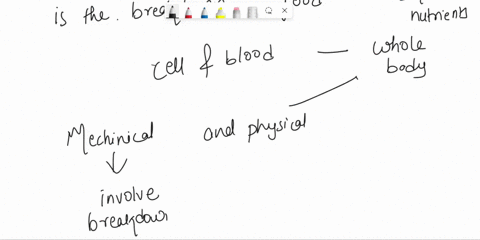 is the
nutrients
cell & blood — whole body
Mechinical and physical
involve
breakdown